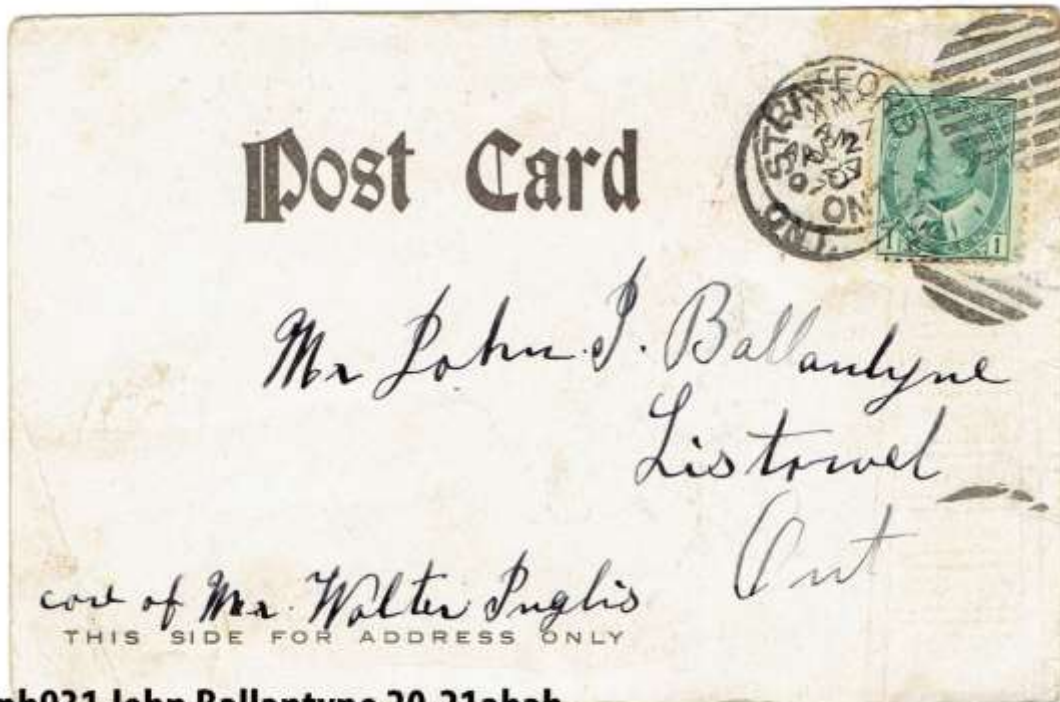 Post Card
STRATFORD
ONT
1 1
Mr John I. Ballantyne
Listowel
Ont
care of Mr. Walter Inglis
THIS SIDE FOR ADDRESS ONLY
John Ballantyne 20-21